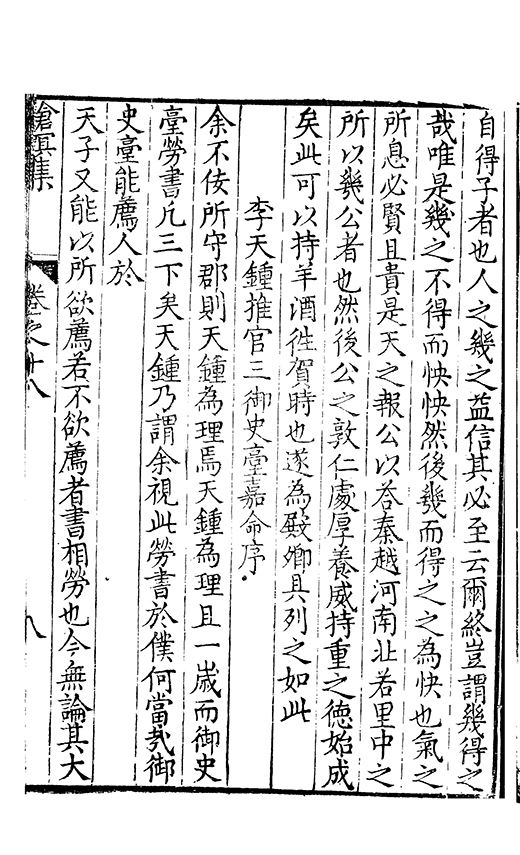 自得子者也人之幾之益信其必至云爾終豈謂幾得之
哉唯是幾之不得而怏怏然後幾而得之之為快也氣之
所息必賢且貴是天之報公以荅秦越河南北若里中之
所以幾公者也然後公之敦仁處厚養威持重之德始成
矣此可以持羊酒徃賀時也遂為殿卿具列之如此
李天鍾推官三御史臺嘉命序
余不佞所守郡則天鍾為理焉天鍾為理且一歲而御史
臺勞書凢三下矣天鍾乃謂余視此勞書於僕何當㢤御
史臺能薦人於
天子又能以所欲薦若不欲薦者書相勞也今無論其大
滄溟集
卷之十八
八